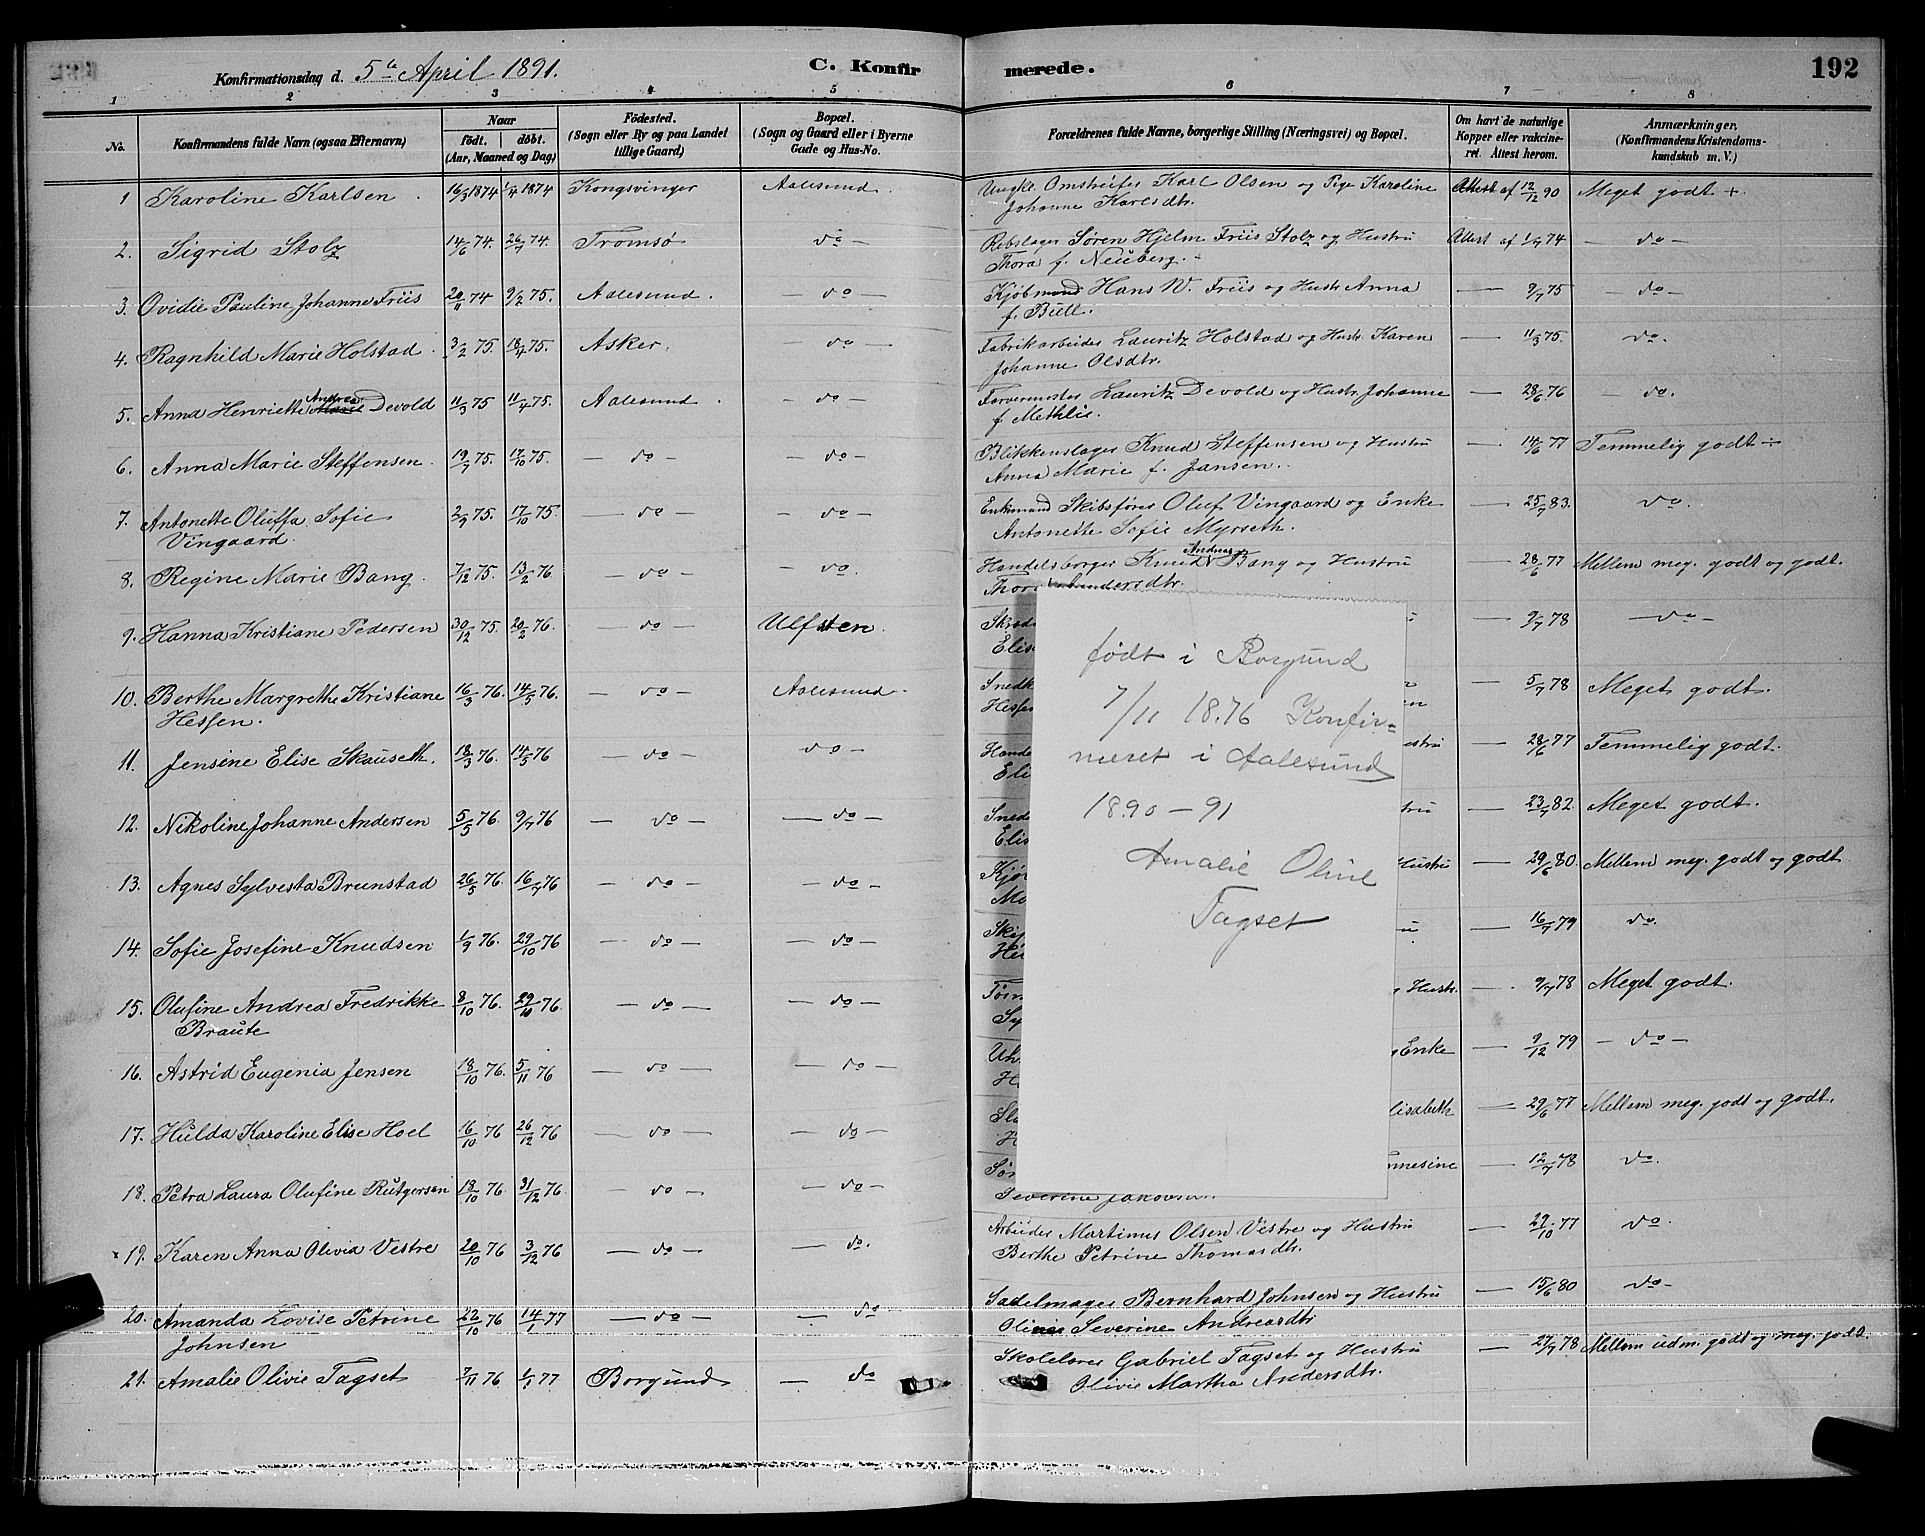 Konfirmationsdag d. 5te April 1891. C. Konfirmerede. 192
1 2 3 4 5 6 7 8
No. Konfirmandens fulde Navn (ogsaa Efternavn) Naar født. døbt. (Aar, Maaned og Dag) Fødested. (Sogn eller By og paa Landet tillige Gaard) Bopæl. (Sogn og Gaard eller i Byerne Gade og Hus-No. Forældrenes fulde Navne, borgerlige Stilling (Næringsvei) og Bopæl. Om havt de naturlige Kopper eller vakcineret. Attest herom. Anmærkninger. (Konfirmandens Kristendomskundskab m. V.)
1 Karoline Karlsen 16/3 1874 1/4 1874 Kongsvinger Aalesund. Ungkl. Omstreifer Karl Olsen og Pige Karoline Attest af 12/12 90 Meget godt +.
Johanne Karlsdtr.
2. Sigrid Stolz 14/6 74. 26/7 74. Tromsø do Rebslager Søren Hjelm Friis Stolz og Hustru Attest af 74 do
Thora f. Neuberg.
3. Ovidie Pauline Johanne Friis 20/11 74 9/2 75. Aalesund. do Kjøbmand Hans W. Friis og Hustr. Anna 9/7 75 do
f. Bull.
4. Ragnhild Marie Holstad 3/2 75. 18/4 75. Asker. do Fabrikarbeider Lauritz Holstad og Hustr. Karen 11/3 75. do.
Johanne Olsdtr.
5. Anna Henriette Andrea Devold 11/3 75 11/4 75. Aalesund. do Farvermester Lauritz Devold og Hustr. Johanne 28/6 76 do.
f. Methlie.
6. Anna Marie Steffensen. 19/7 75. 17/10 75. do do Blikkenslager Knud Steffensen og Hustru 14/6 77 Temmelig godt ÷
Anna Marie f. Jansen.
7. Antonette Oluffa Sofie 2/9 75. 17/10 75 do do Enkmand Skibsfører Oluf Vingaard og Enke 25/7 83. do.
Vingaard. Antonette Sofie Myrseth.
8. Regine Marie Bang. 7/12 75. 13/2 76 do do. Handelsborger Knud Andreas Bang og Hustru 28/6 77 Mellem meg. godt og godt.
9. Hanna Kristiane Pedersen 30/12 75. 20/2 76. do Ulfsten. 9/7 78 do
10. Berthe Margrethe Kristiane 16/3 76. 14/5 76. do Aalesund. Snedk 5/7 78 Meget godt.
Hessen. Hessen
11. Jensine Elise Skauseth. 18/3 76. 14/5 76 do do Hand 28/6 77 Temmelig godt.
12. Nikoline Johanne Andersen 5/5 76. 9/7 76 do do Sned 23/7 82. Meget godt.
Elis
13. Agnes Sylvesta Brunstad 26/5 76. 16/7 76 do do Kjør Hustru 29/6 80 Mellem meg. godt og godt
14. Sofie Josefine Knudsen 1/9 76. 29/10 76 do do 16/7 79 do.
15. Olufine Andrea Fredrikke 8/10 76. 29/10 76. do do Hustr. 9/7 78 Meget godt.
Braute
16. Astrid Eugenia Jensen 18/10 76. 5/11 76 do do Enke 9/12 79 do
17. Hulda Karoline Elise Hoel 16/10 76 26/12 76 do do lisabeth 29/6 77 Mellem meg. godt og godt.
18. Petra Laura Olufine Rutgersen 18/10 76 31/12 76. do do nnesine 12/7 78 do.
Severine
født i Borgund
7/11 1876 Konfir=
meret i Aalesund
1890-91
Amalie Oline
Tagset
x 19. Karen Anna Olivia Vestre 20/10 76 3/12 76 do do. Arbeider Martinus Olsen Vestre og Hustru 29/10 77 do
Berthe Petrine Thomasdtr.
20. Amanda Lovise Petrine 22/10 76 14/1 77 do do Sadelmager Bernhard Johnsen og Hustru 15/6 80 do
Johnsen Severine Andreasdtr
21. Amalie Olivie Tagset 7/11 76 1/1 77 Borgund do Skolelærer Gabriel Tagset og Hustru 27/7 78 Mellem udm. godt og meg. godt.
Olivie Martha Andersdtr.